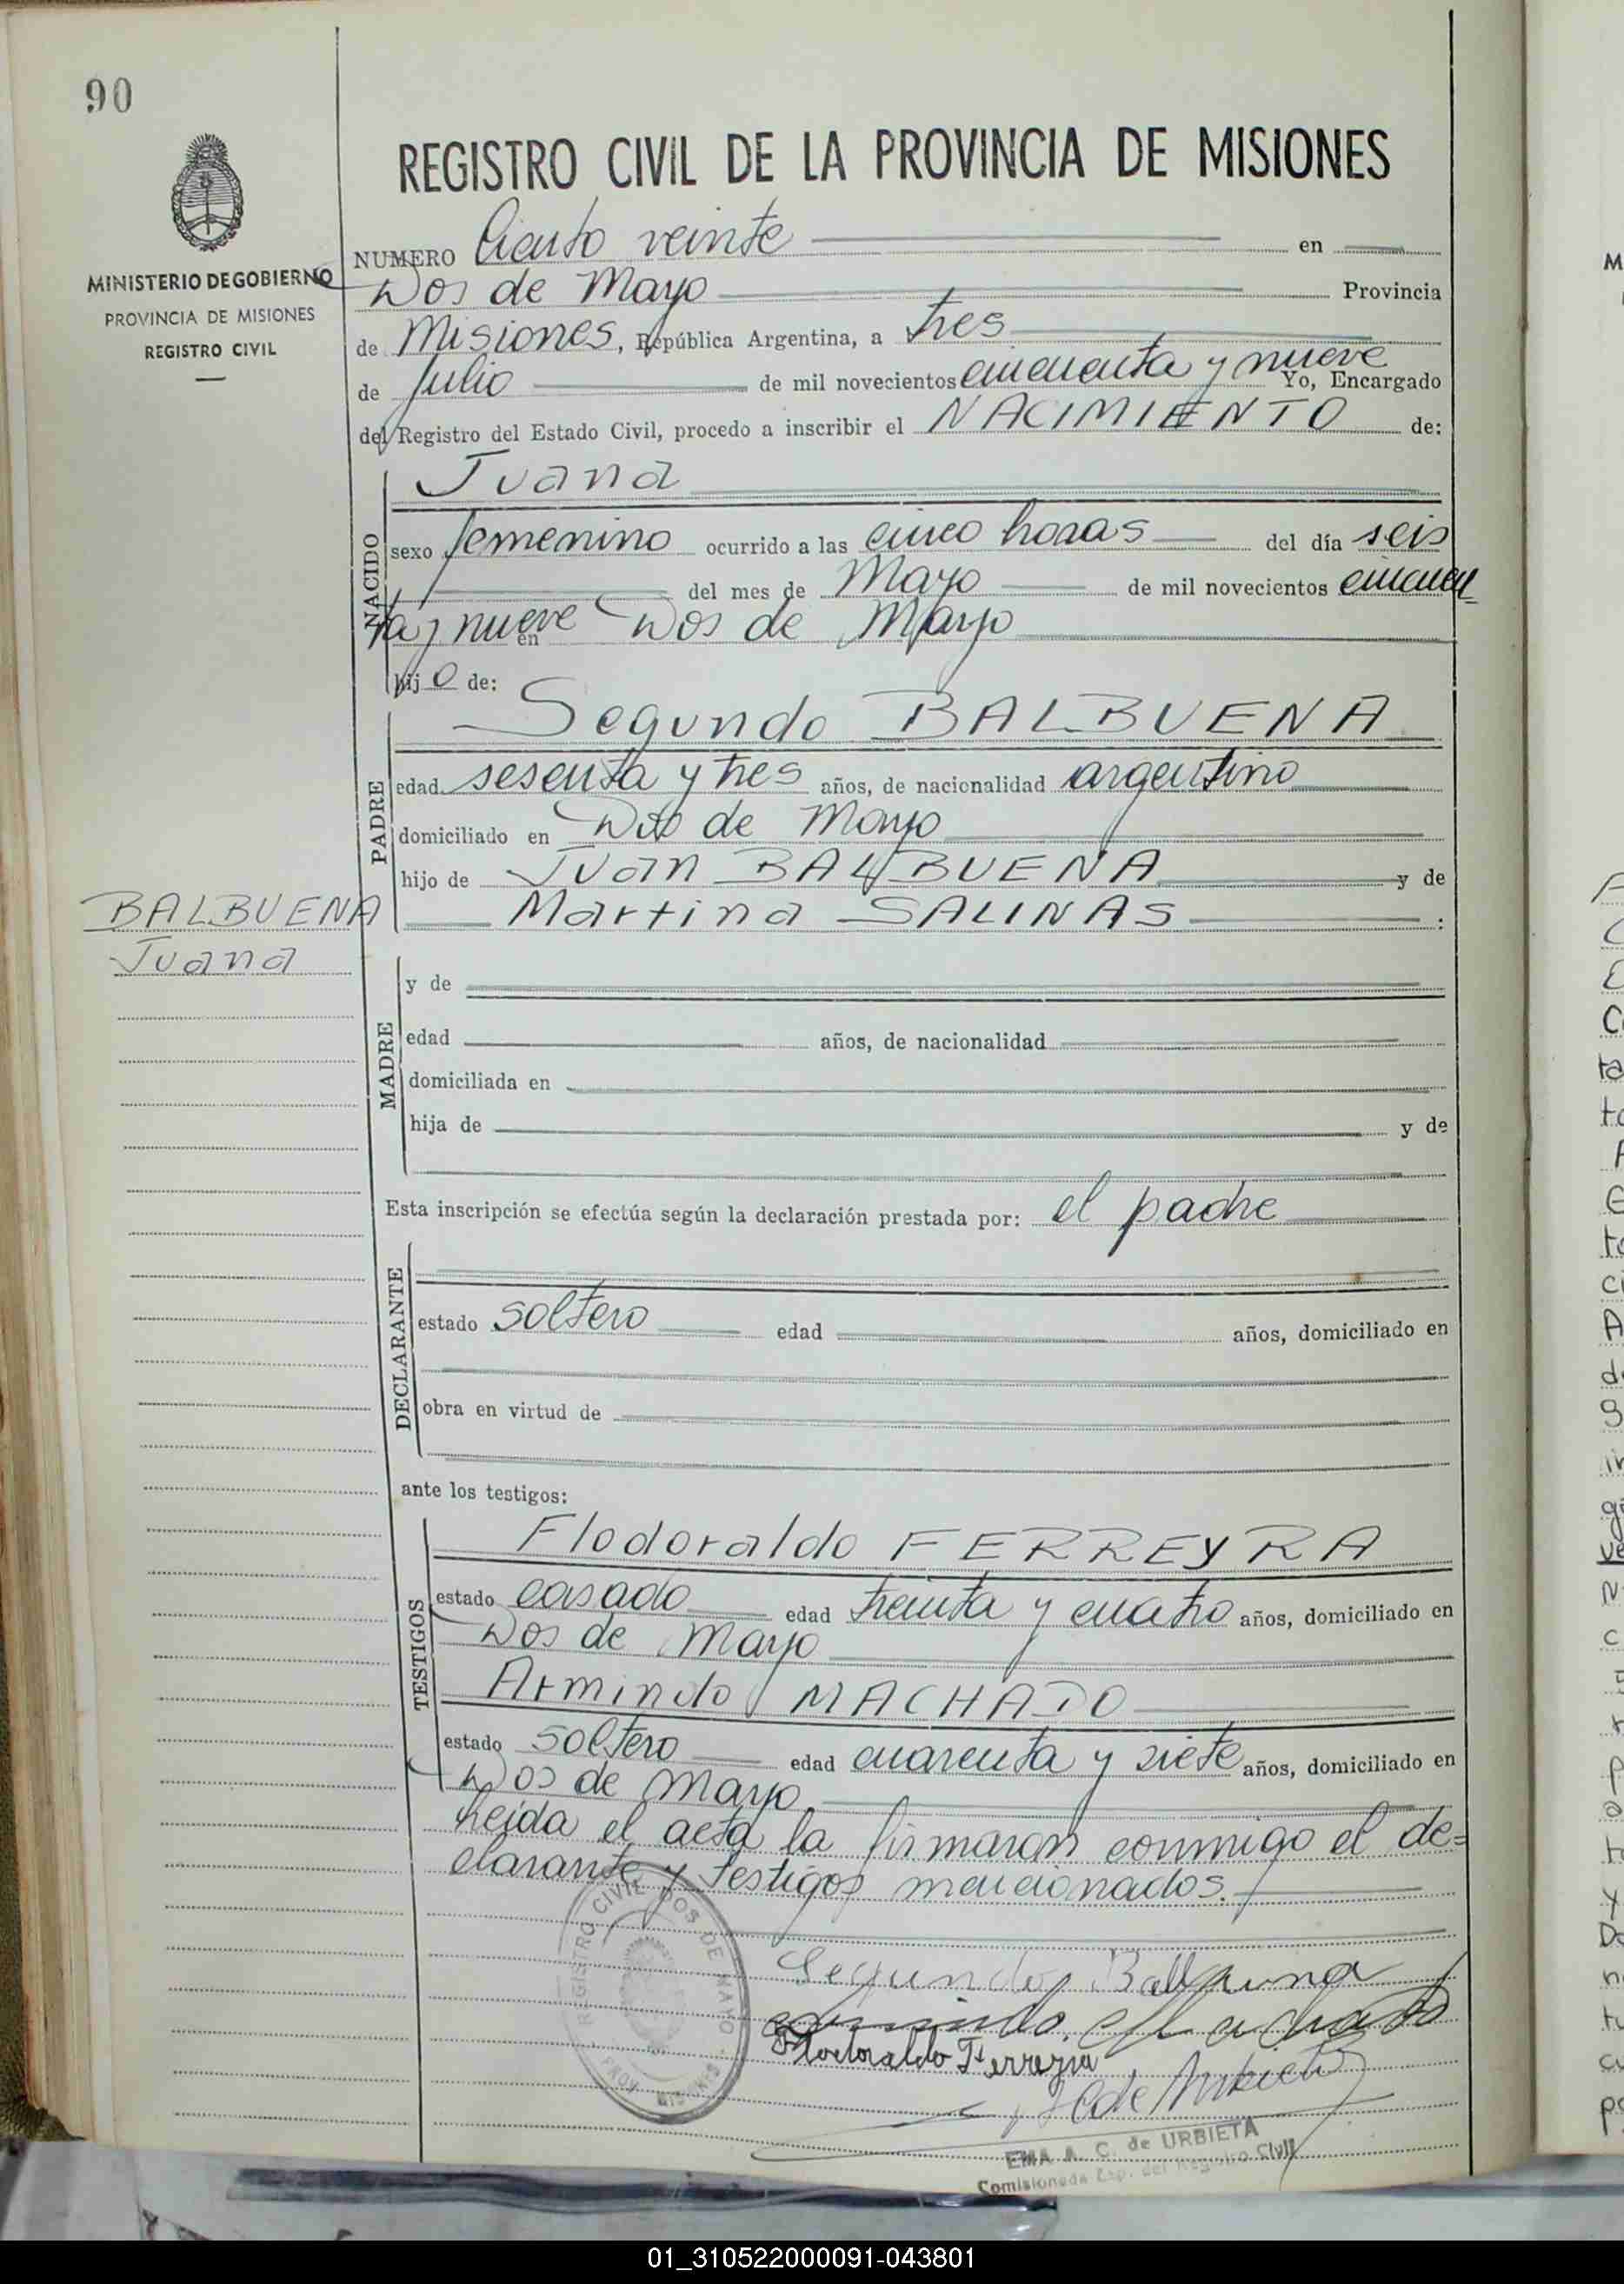 90
MINISTERIO DE GOBIERNO
PROVINCIA DE MISIONES
REGISTRO CIVIL
REGISTRO CIVIL DE LA PROVINCIA DE MISIONES
NUMERO Ciento veinte en
Dos de Mayo Provincia
de Misiones, República Argentina, a tres
de Julio de mil novecientos cincuenta y nueve Yo, Encargado
del Registro del Estado Civil, procedo a inscribir el NACIMIENTO de:
NACIDO
Juana
sexo femenino ocurrido a las cinco horas del día seis
del mes de Mayo de mil novecientos cincuen-
ta y nueve en Dos de Mayo
hijo de:
PADRE
Segundo BALBUENA
edad sesenta y tres años, de nacionalidad argentino
domiciliado en Dos de Mayo
hijo de Juan BALBUENA y de
Martina SALINAS :
BALBUENA
Juana
MADRE
y de
edad años, de nacionalidad
domiciliada en
hija de y de
Esta inscripción se efectúa según la declaración prestada por: el padre
DECLARANTE
estado soltero edad años, domiciliado en
obra en virtud de
ante los testigos:
TESTIGOS
Flodoraldo FERREYRA
estado casado edad treinta y cuatro años, domiciliado en
Dos de Mayo
Armindo MACHADO
estado soltero edad cuarenta y siete años, domiciliado en
Dos de Mayo
Leida el acta la firmaron conmigo el de=
clarante y testigos mencionados.
REGISTRO CIVIL DOS DE MAYO
Segundo Balbuena
Armindo Machado
Flodoraldo Ferreyra
EMA A. C. de URBIETA
Comisionada Esp. del Registro Civil
01_310522000091-043801